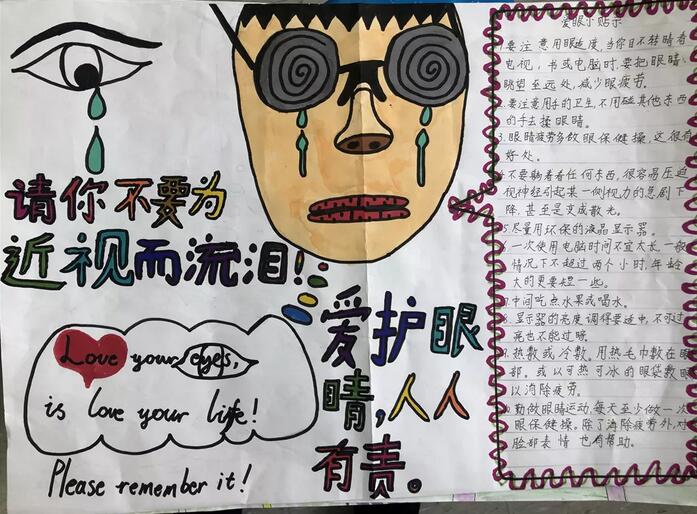 请你不要为
近视而流泪!
Love your eyes,
is love your life!
Please remember it!
爱护眼
睛,人人
有责。
爱眼小贴示
1.要注意用眼适度,当你目不转睛看
电视,书或电脑时,要把眼睛
眺望至远处,减少眼疲劳。
2.要注意用手的卫生,不用碰其他东西
的手去揉眼睛。
3.眼睛疲劳多做眼保健操,这很有
好处。
4.不要躺着看任何东西,很容易压迫
视神经引起某一侧视力的急剧下
降,甚至是变成散光。
5.尽量用环保的液晶显示器。
6.一次使用电脑时间不宜太长,一般
情况下不超过两个小时,年龄
大的更要短一些。
7.中间吃点水果或喝水。
8.显示器的亮度调得要适中,不可过
亮也不能过暗。
9.热敷或冷敷。用热毛巾敷在眼
部。或以可热可冰的眼袋敷眼
以消除疲劳。
10.勤做眼睛运动,每天至少做一次
眼保健操。除了消除疲劳外,对
脸部表情也有帮助。